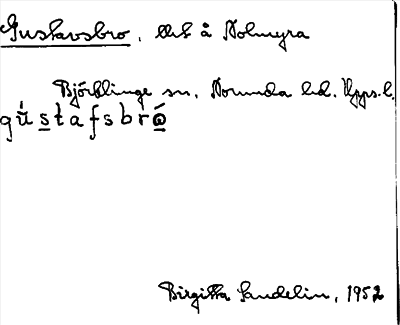 Gustavsbro, utk å Nolmyra
Björklinge sn. Norunda hd. Upps. l.
gu̍stafsbrò̱
Birgitta Sandelin, 1952